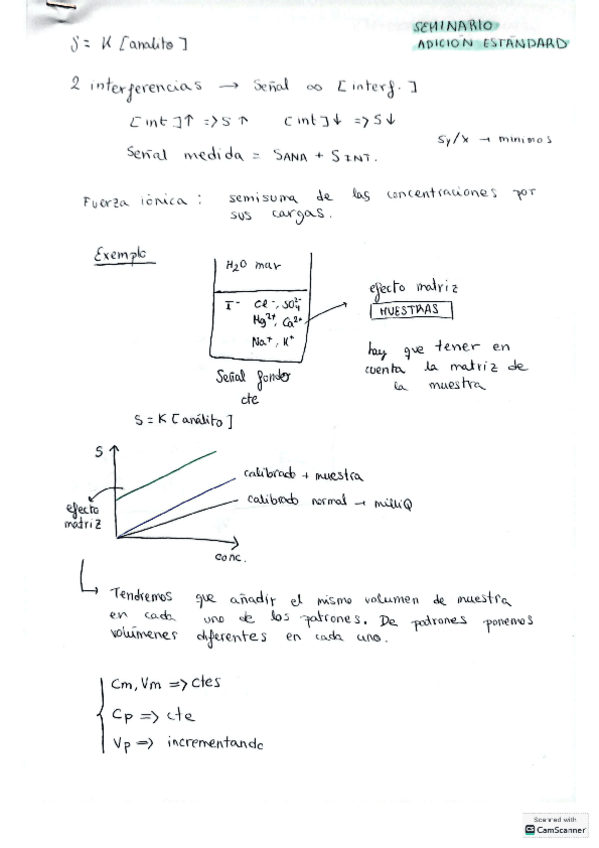 SEMINARIO
ADICIÓN ESTÁNDARD
S = K [analito]
2 interferencias → señal ∞ [interf.]
[int]↑ => S ↑   [int]↓ => S↓
Sy/x → mínimos
Señal medida = SANA + SINT.
Fuerza iónica : semisuma de las concentraciones por
sus cargas.
Exemplo
H2O mar
I⁻ Cl⁻, SO4²⁻
Mg²⁺, Ca²⁺
Na⁺, K⁺
efecto matriz
MUESTRAS
hay que tener en
cuenta la matriz de
la muestra
Señal fondo
cte
S = K [análito]
S
calibrado + muestra
calibrado normal → milliQ
efecto
matriz
conc.
Tendremos que añadir el mismo volumen de muestra
en cada uno de los patrones. De patrones ponemos
volúmenes diferentes en cada uno.
Cm, Vm => ctes
Cp => cte
Vp => incrementando
Scanned with
CS CamScanner